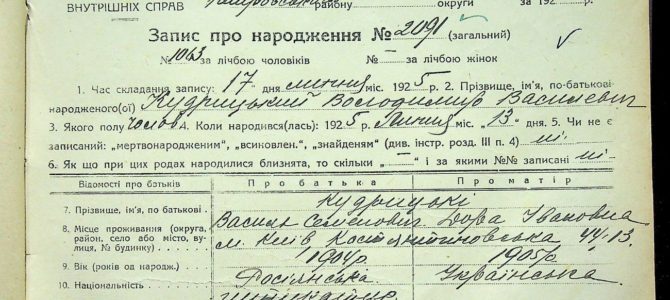 ВНУТРІШНІХ СПРАВ району округи за 192 р.
Запис про народження № 2091 (загальний)
№ 1043 за лічбою чоловіків № — за лічбою жінок
1. Час складання запису: 17 дня липня міс. 1925 р. 2. Прізвище, ім'я, по-батькові
народженого(ої) Кудрицький Володимир Василевич
3. Якого полу чолов. 4. Коли народився(лась): 1925 р. Липня міс. „13" дня. 5. Чи не є
записаний: „мертвонародженим", „всиновлен.", „знайденям" (див. інстр. розд. III п. 4) ні
6. Як що при цих родах народилися близнята, то скільки „—" і за якими №№ записані ні
Відомості про батьків Про батька Про матір
Кудрицькі
7. Прізвище, ім'я, по батькові . Василь Семенович Дора Івановна
8. Місце проживання (округа, район, село або місто, вулиця, № будинку) . м. Київ Костянтиновська 44-13.
9. Вік (років од народж.) . 1904р. 1905р.
10. Національність Росіянська Українська